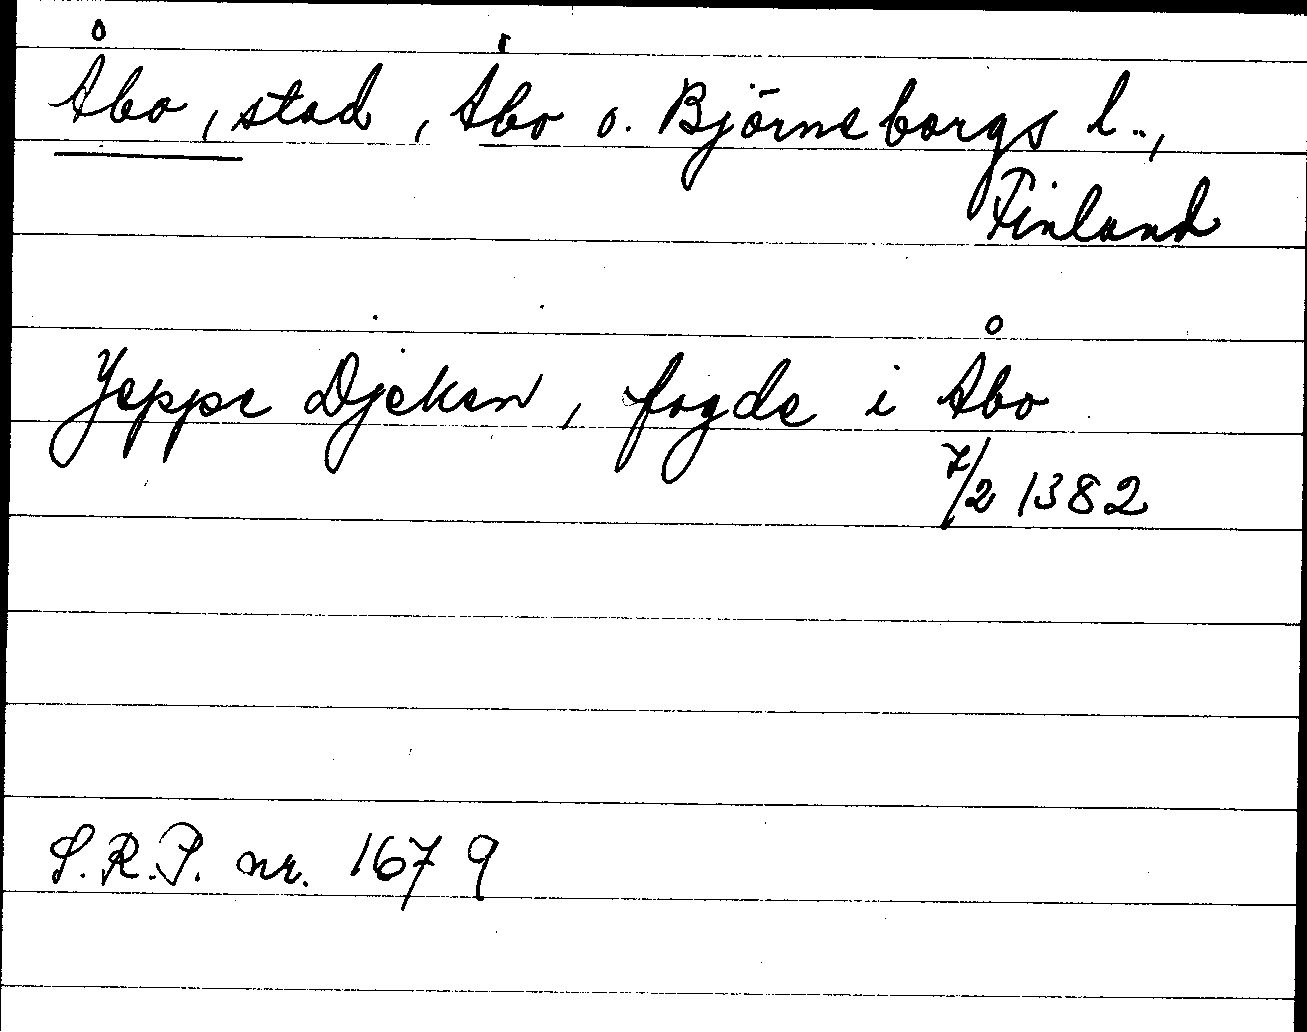 Åbo, stad, Åbo o. Björneborgs l.,
Finland
Jeppe Djeken, fogde i Åbo
7/2 1382
S.R.P. nr. 1679